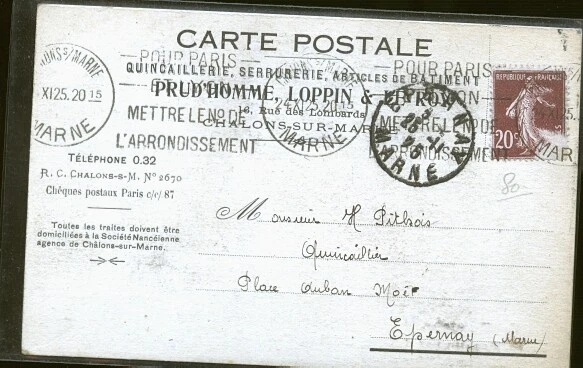 CARTE POSTALE
QUINCAILLERIE, SERRURERIE, ARTICLES DE BÂTIMENT
PRUD'HOMME, LOPPIN &
16, Rue des Lombards
CHALONS-SUR-MARNE
TÉLÉPHONE 0.32
R. C. CHALONS-S-M. Nº 2670
Chèques postaux Paris c/c 87
Toutes les traites doivent être
domiciliées à la Société Nancéienne
agence de Châlons-sur-Marne.
S/MARNE
XI25.2015
MARNE
POUR PARIS
METTRE LE Nº DE
L'ARRONDISSEMENT
S/MARNE
24 XI25.20
MARNE
POUR PARIS
METTRE LE Nº DE
ARRONDISSEMENT
MARNE
REPUBLIQUE FRANÇAISE
20c
80
Monsieur H Pithois
Quincaillier
Place Auban Moët
Epernay (Marne)